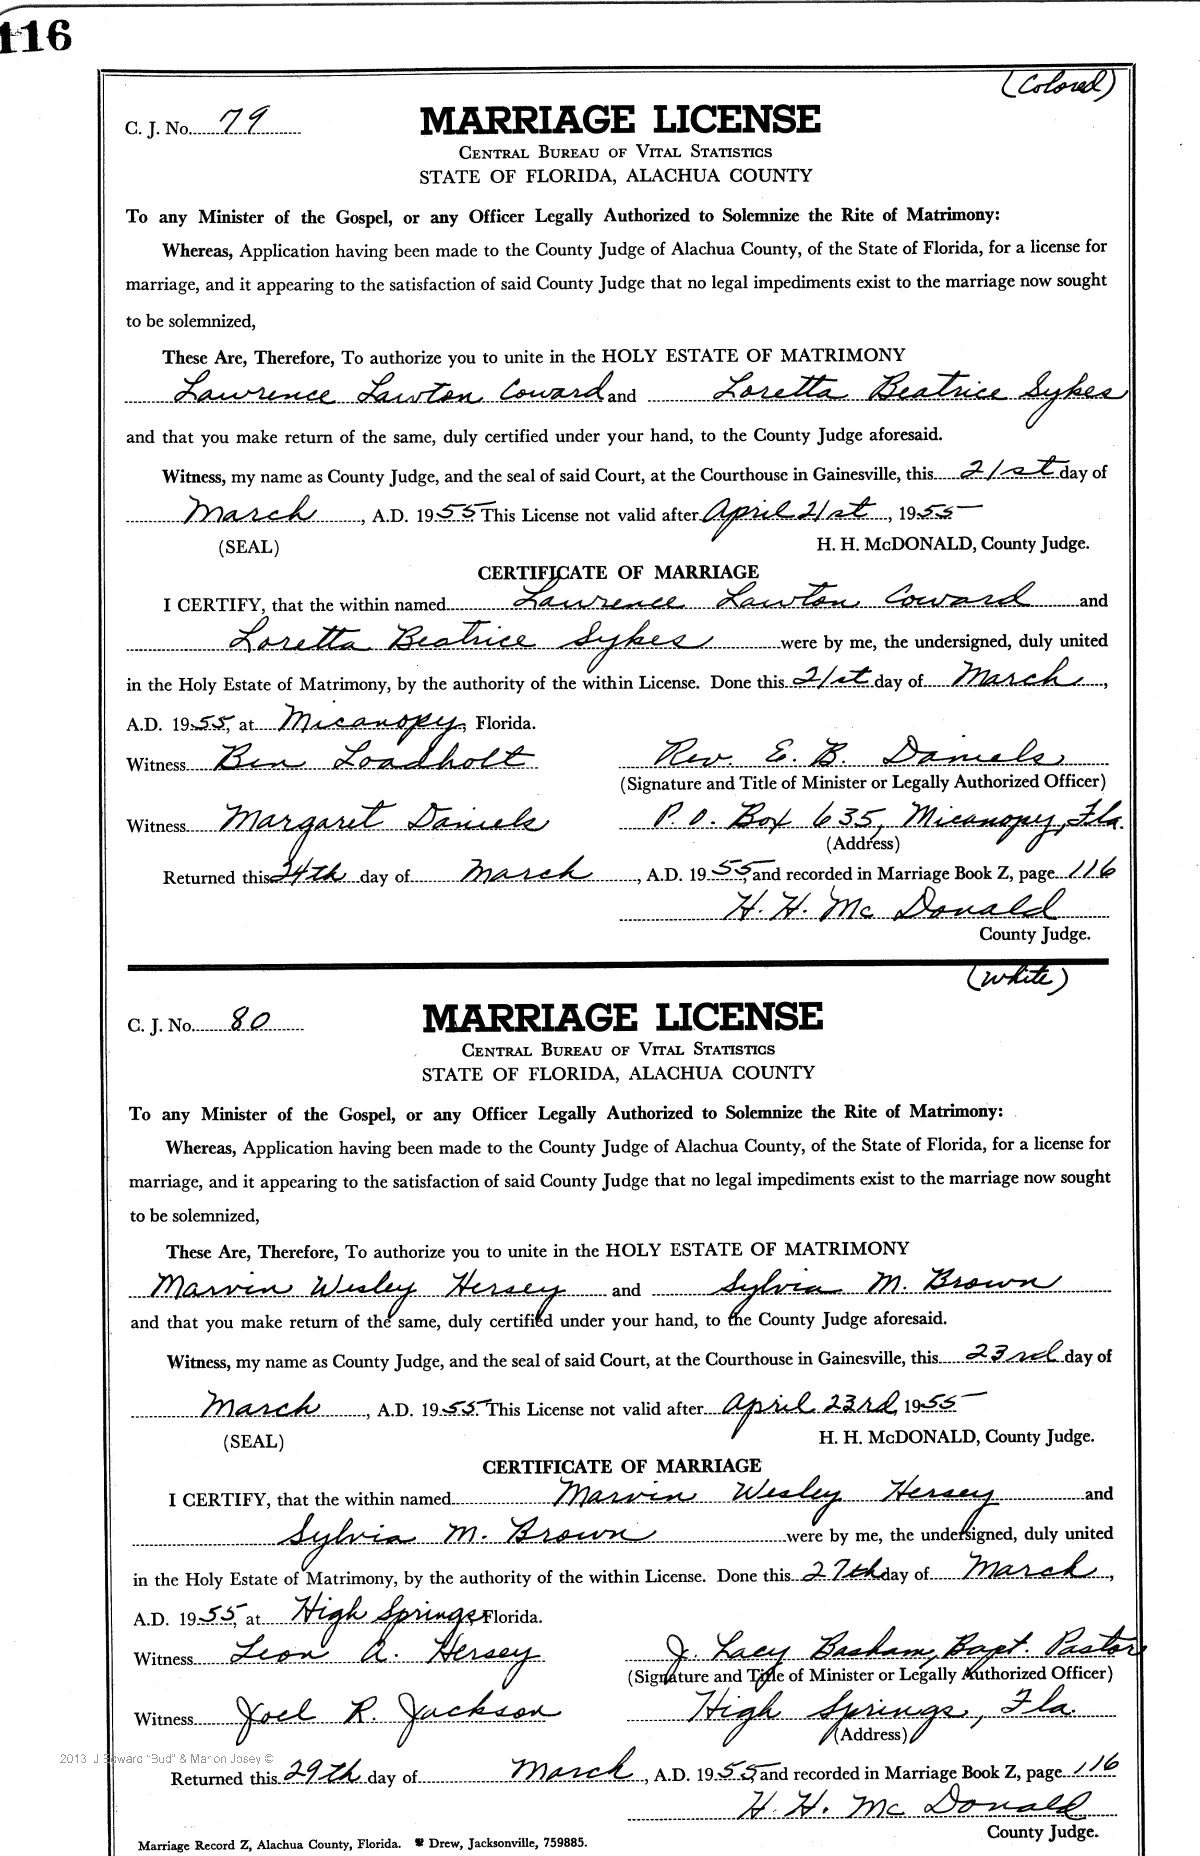 116
(Colored)
C. J. No. 79
MARRIAGE LICENSE
CENTRAL BUREAU OF VITAL STATISTICS
STATE OF FLORIDA, ALACHUA COUNTY
To any Minister of the Gospel, or any Officer Legally Authorized to Solemnize the Rite of Matrimony:
Whereas, Application having been made to the County Judge of Alachua County, of the State of Florida, for a license for
marriage, and it appearing to the satisfaction of said County Judge that no legal impediments exist to the marriage now sought
to be solemnized,
These Are, Therefore, To authorize you to unite in the HOLY ESTATE OF MATRIMONY
Lawrence Lawton Coward and Loretta Beatrice Sykes
and that you make return of the same, duly certified under your hand, to the County Judge aforesaid.
Witness, my name as County Judge, and the seal of said Court, at the Courthouse in Gainesville, this 21st day of
March, A.D. 1955. This License not valid after April 21st, 1955
(SEAL) H. H. McDONALD, County Judge.
CERTIFICATE OF MARRIAGE
I CERTIFY, that the within named Lawrence Lawton Coward and
Loretta Beatrice Sykes were by me, the undersigned, duly united
in the Holy Estate of Matrimony, by the authority of the within License. Done this 21st day of March,
A.D. 1955, at Micanopy, Florida.
Witness Ben Loadholt Rev. E. B. Daniels
(Signature and Title of Minister or Legally Authorized Officer)
Witness Margaret Daniels P. O. Box 635, Micanopy, Fla.
(Address)
Returned this 24th day of March, A.D. 1955, and recorded in Marriage Book Z, page 116
H. H. McDonald
County Judge.
(White)
C. J. No. 80
MARRIAGE LICENSE
CENTRAL BUREAU OF VITAL STATISTICS
STATE OF FLORIDA, ALACHUA COUNTY
To any Minister of the Gospel, or any Officer Legally Authorized to Solemnize the Rite of Matrimony:
Whereas, Application having been made to the County Judge of Alachua County, of the State of Florida, for a license for
marriage, and it appearing to the satisfaction of said County Judge that no legal impediments exist to the marriage now sought
to be solemnized,
These Are, Therefore, To authorize you to unite in the HOLY ESTATE OF MATRIMONY
Marvin Wesley Hersey and Sylvia M. Brown
and that you make return of the same, duly certified under your hand, to the County Judge aforesaid.
Witness, my name as County Judge, and the seal of said Court, at the Courthouse in Gainesville, this 23rd day of
March, A.D. 1955. This License not valid after April 23rd, 1955
(SEAL) H. H. McDONALD, County Judge.
CERTIFICATE OF MARRIAGE
I CERTIFY, that the within named Marvin Wesley Hersey and
Sylvia M. Brown were by me, the undersigned, duly united
in the Holy Estate of Matrimony, by the authority of the within License. Done this 27th day of March,
A.D. 1955, at High Springs, Florida.
Witness Leon A. Hersey J. Lacy Basham, Bapt. Pastor
(Signature and Title of Minister or Legally Authorized Officer)
Witness Joel R. Jackson High Springs, Fla.
(Address)
2013 J Edward "Bud" & Marion Josey ©
Returned this 29th day of March, A.D. 1955, and recorded in Marriage Book Z, page 116
H. H. McDonald
County Judge.
Marriage Record Z, Alachua County, Florida. Drew, Jacksonville, 759885.